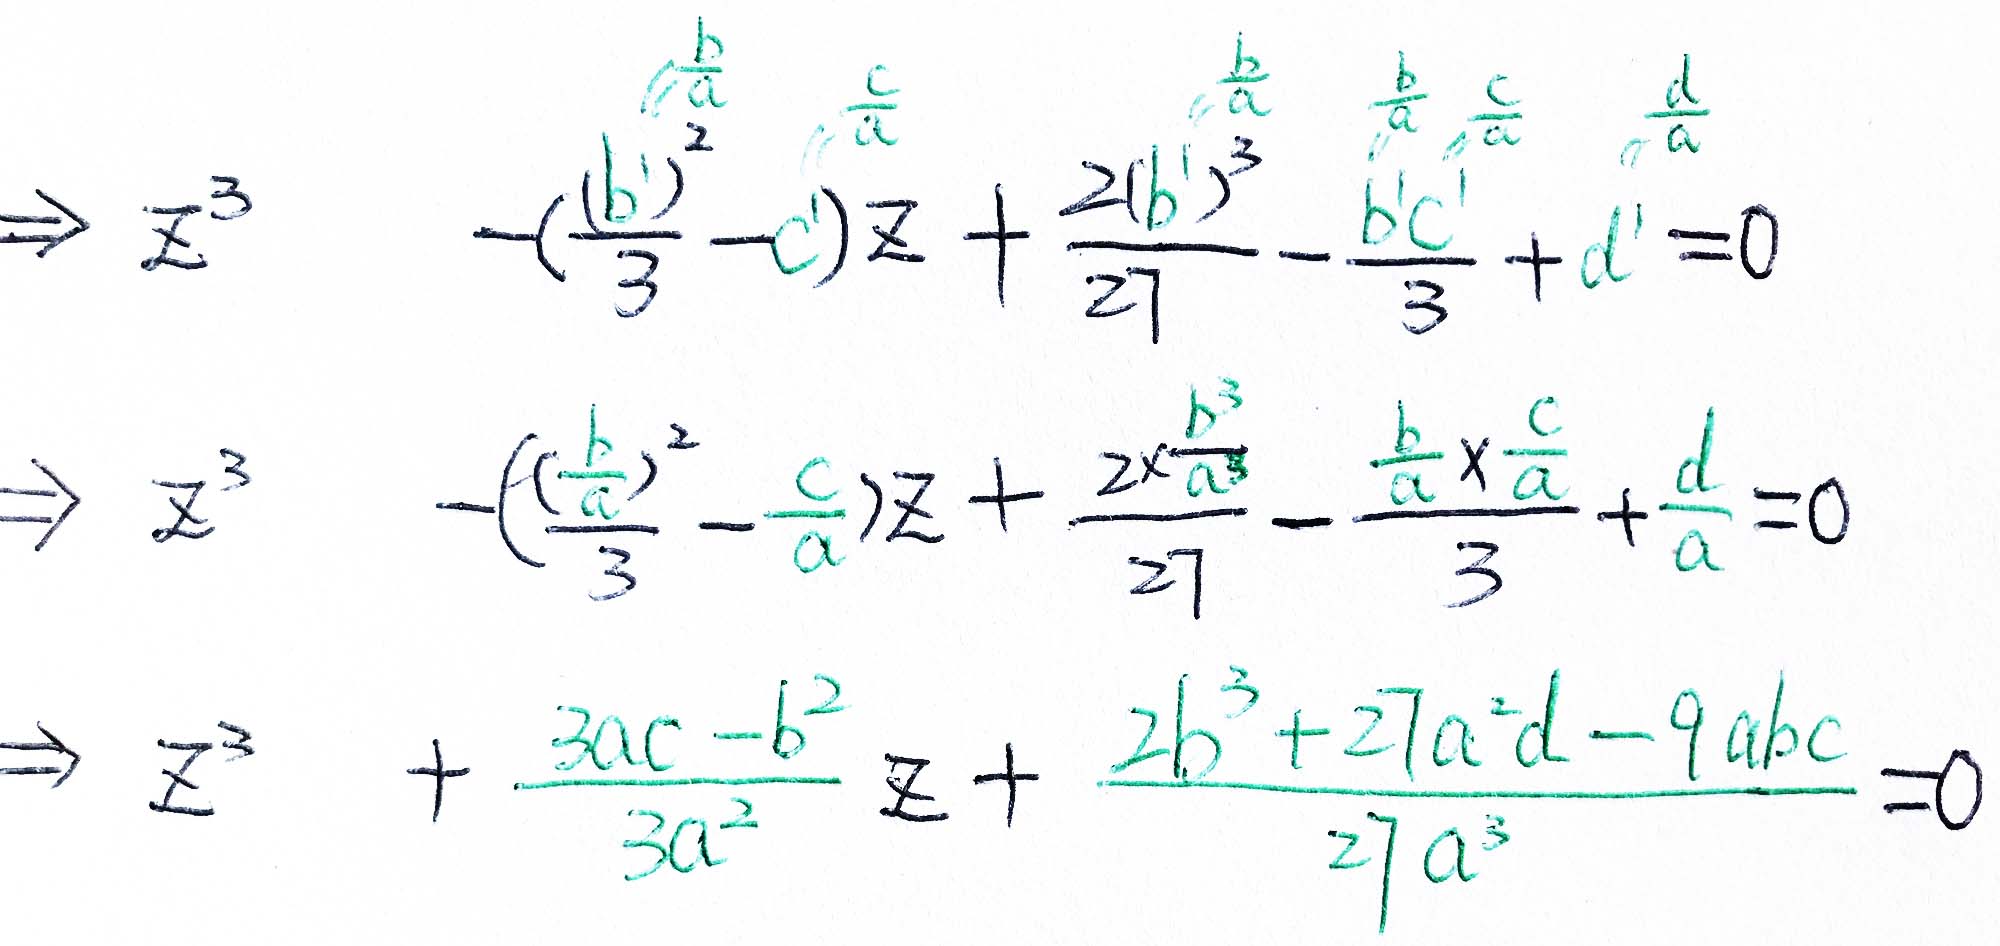 b/a c/a b/a b/a c/a d/a
⇒ z³ -((b')²/3 - c')z + 2(b')³/27 - b'c'/3 + d' = 0
⇒ z³ -((b/a)²/3 - c/a)z + (2×b³/a³)/27 - (b/a × c/a)/3 + d/a = 0
⇒ z³ + (3ac - b²)/(3a²) z + (2b³ + 27a²d - 9abc)/(27a³) = 0